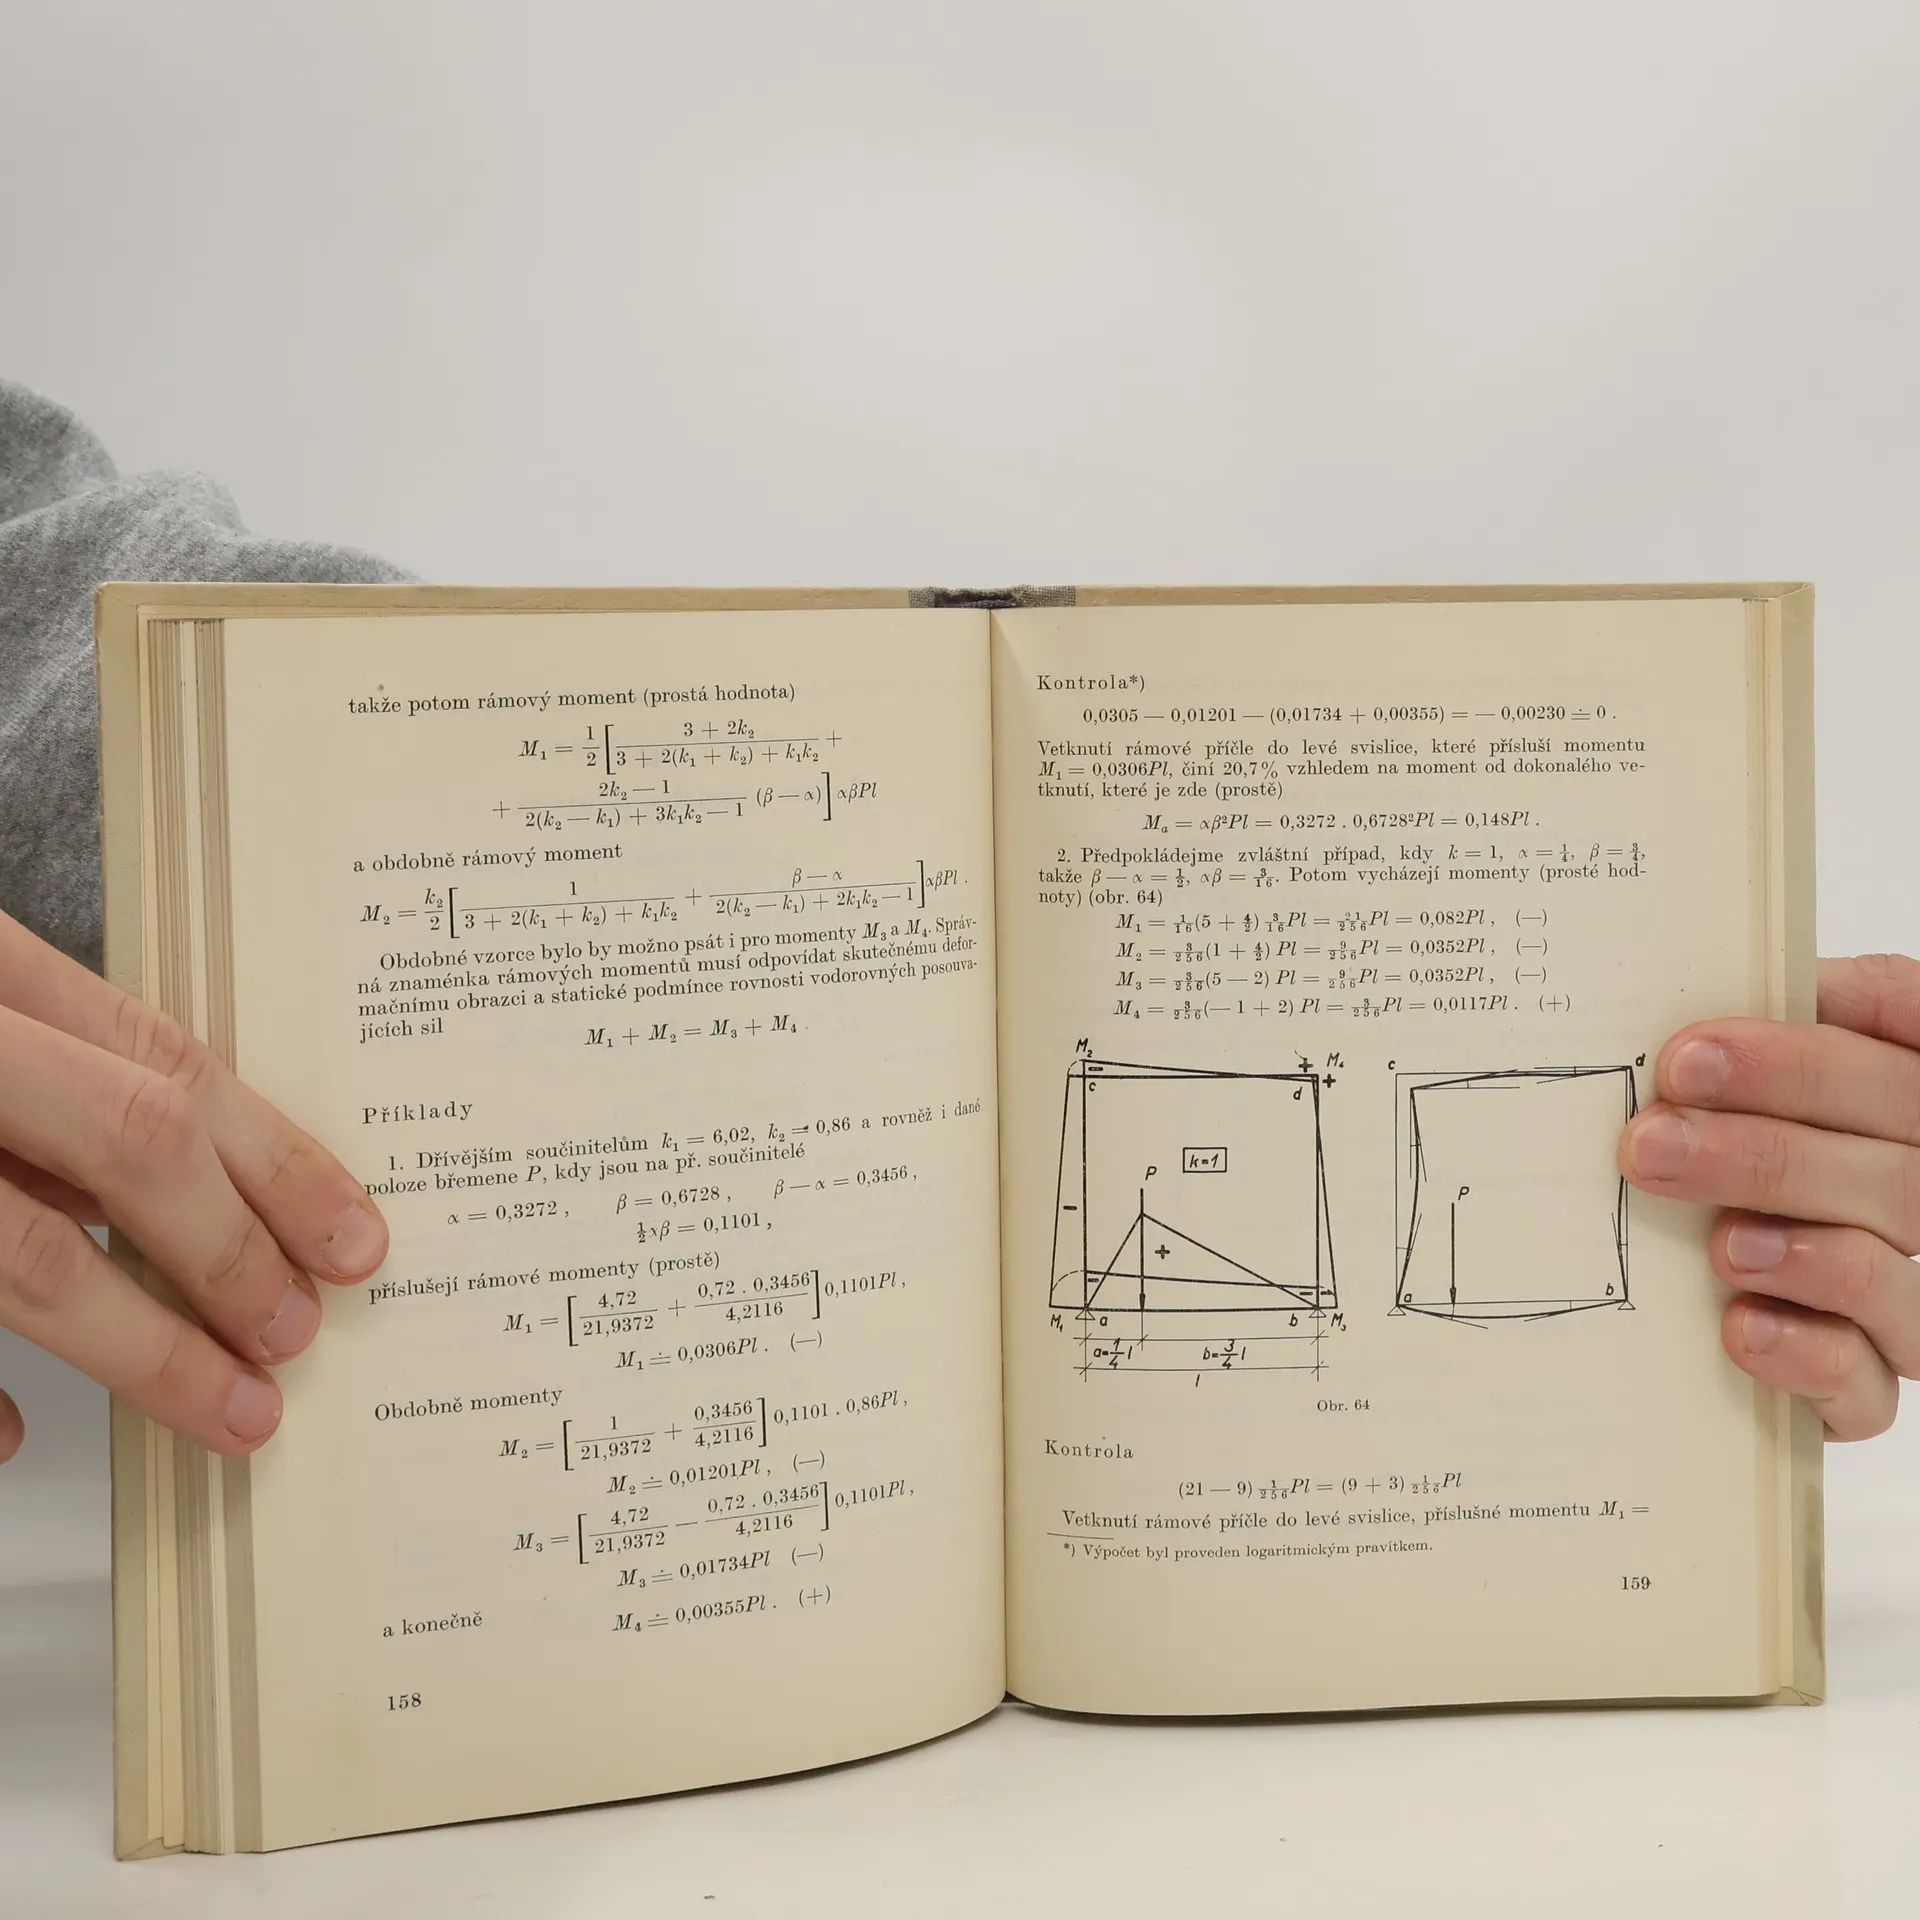 takže potom rámový moment (prostá hodnota)
M₁ = 1/2 [ (3 + 2k₂)/(3 + 2(k₁ + k₂) + k₁k₂) +
+ (2k₂ — 1)/(2(k₂ — k₁) + 3k₁k₂ — 1) (β — α) ] αβPl
a obdobně rámový moment
M₂ = k₂/2 [ 1/(3 + 2(k₁ + k₂) + k₁k₂) + (β — α)/(2(k₂ — k₁) + 2k₁k₂ — 1) ] αβPl .
Obdobné vzorce bylo by možno psát i pro momenty M₃ a M₄. Správ-
ná znaménka rámových momentů musí odpovídat skutečnému defor-
mačnímu obrazci a statické podmínce rovnosti vodorovných posouva-
jících sil
M₁ + M₂ = M₃ + M₄ .
Příklady
1. Dřívějším součinitelům k₁ = 6,02, k₂ = 0,86 a rovněž i dané
poloze břemene P, kdy jsou na př. součinitelé
α = 0,3272 , β = 0,6728 , β — α = 0,3456 ,
½αβ = 0,1101 ,
příslušejí rámové momenty (prostě)
M₁ = [ 4,72/21,9372 + 0,72 . 0,3456/4,2116 ] 0,1101Pl ,
M₁ ≐ 0,0306Pl . (—)
Obdobně momenty
M₂ = [ 1/21,9372 + 0,3456/4,2116 ] 0,1101 . 0,86Pl ,
M₂ ≐ 0,01201Pl , (—)
M₃ = [ 4,72/21,9372 — 0,72 . 0,3456/4,2116 ] 0,1101Pl ,
M₃ ≐ 0,01734Pl (—)
a konečně M₄ ≐ 0,00355Pl . (+)
158
Kontrola*)
0,0305 — 0,01201 — (0,01734 + 0,00355) = — 0,00230 ≐ 0 .
Vetknutí rámové příčle do levé svislice, které přísluší momentu
M₁ = 0,0306Pl, činí 20,7% vzhledem na moment od dokonalého ve-
tknutí, které je zde (prostě)
Mₐ = αβ²Pl = 0,3272 . 0,6728²Pl = 0,148Pl .
2. Předpokládejme zvláštní případ, kdy k = 1, α = 1/4, β = 3/4,
takže β — α = 1/2, αβ = 3/16. Potom vycházejí momenty (prosté hod-
noty) (obr. 64)
M₁ = 1/16(5 + 4/2) 3/16Pl = 21/256Pl = 0,082Pl , (—)
M₂ = 3/256(1 + 4/2) Pl = 9/256Pl = 0,0352Pl , (—)
M₃ = 3/256(5 — 2) Pl = 9/256Pl = 0,0352Pl , (—)
M₄ = 3/256(— 1 + 2) Pl = 3/256Pl = 0,0117Pl . (+)
M₂ + M₄ c d
— c d +
k=1
P P
— +
— —
M₁ a b M₃ a b
a=1/4 l b=3/4 l
l
Obr. 64
Kontrola
(21 — 9) 1/256Pl = (9 + 3) 1/256Pl
Vetknutí rámové příčle do levé svislice, příslušné momentu M₁ =
*) Výpočet byl proveden logaritmickým pravítkem.
159